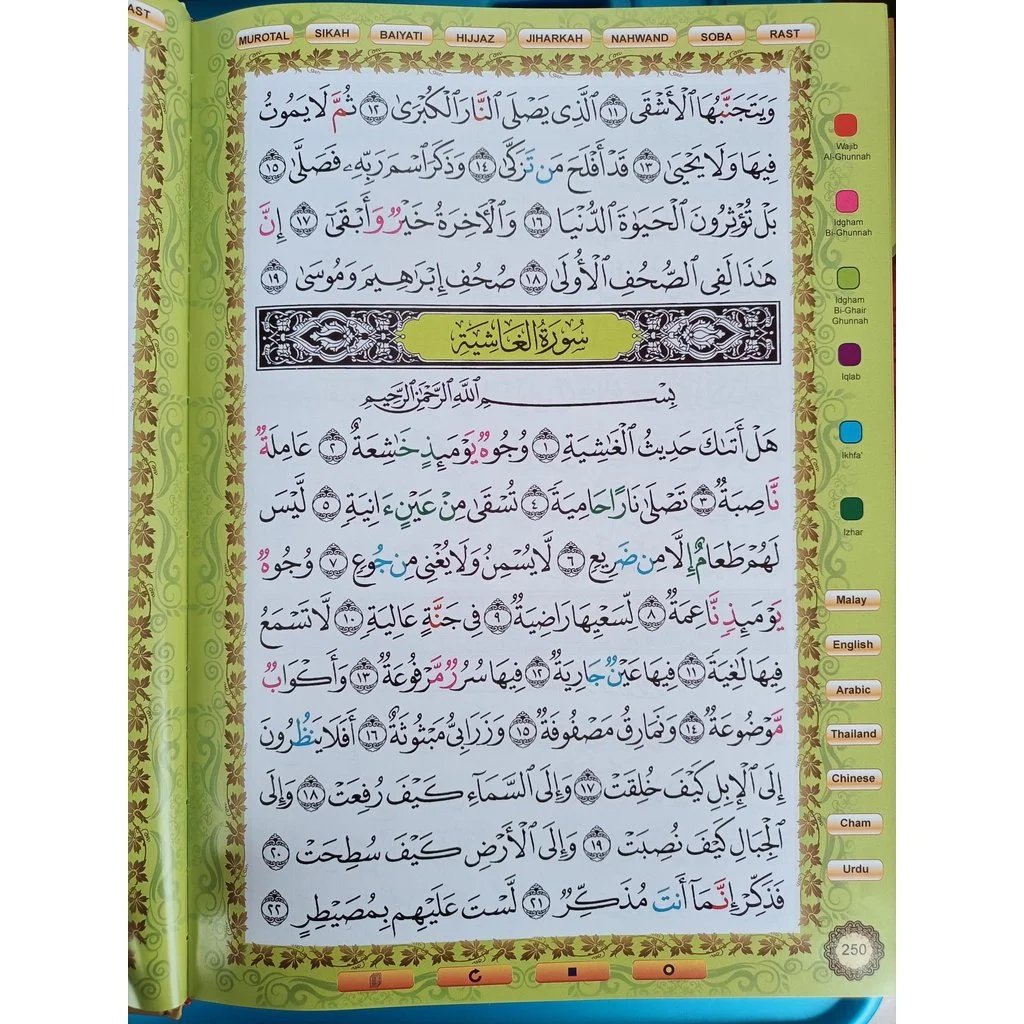 AST
MUROTAL SIKAH BAIYATI HIJJAZ JIHARKAH NAHWAND SOBA RAST
وَيَتَجَنَّبُهَا الْأَشْقَى ١١ الَّذِي يَصْلَى النَّارَ الْكُبْرَىٰ ١٢ ثُمَّ لَا يَمُوتُ
فِيهَا وَلَا يَحْيَىٰ ١٣ قَدْ أَفْلَحَ مَن تَزَكَّىٰ ١٤ وَذَكَرَ اسْمَ رَبِّهِۦ فَصَلَّىٰ ١٥
بَلْ تُؤْثِرُونَ الْحَيَوٰةَ الدُّنْيَا ١٦ وَالْأَخِرَةُ خَيْرٌ وَأَبْقَىٰٓ ١٧ إِنَّ
هَٰذَا لَفِي الصُّحُفِ الْأُولَىٰ ١٨ صُحُفِ إِبْرَاهِيمَ وَمُوسَىٰ ١٩
سُورَةُ الْغَاشِيَةِ
بِسْمِ اللَّهِ الرَّحْمَٰنِ الرَّحِيمِ
هَلْ أَتَىٰكَ حَدِيثُ الْغَٰشِيَةِ ١ وُجُوهٌ يَوْمَئِذٍ خَٰشِعَةٌ ٢ عَامِلَةٌ
نَّاصِبَةٌ ٣ تَصْلَىٰ نَارًا حَامِيَةً ٤ تُسْقَىٰ مِنْ عَيْنٍ ءَانِيَةٍ ٥ لَّيْسَ
لَهُمْ طَعَامٌ إِلَّا مِن ضَرِيعٍ ٦ لَّا يُسْمِنُ وَلَا يُغْنِي مِن جُوعٍ ٧ وُجُوهٌ
يَوْمَئِذٍ نَّاعِمَةٌ ٨ لِّسَعْيِهَا رَاضِيَةٌ ٩ فِي جَنَّةٍ عَالِيَةٍ ١٠ لَّا تَسْمَعُ
فِيهَا لَٰغِيَةً ١١ فِيهَا عَيْنٌ جَارِيَةٌ ١٢ فِيهَا سُرُرٌ مَّرْفُوعَةٌ ١٣ وَأَكْوَابٌ
مَّوْضُوعَةٌ ١٤ وَنَمَارِقُ مَصْفُوفَةٌ ١٥ وَزَرَابِيُّ مَبْثُوثَةٌ ١٦ أَفَلَا يَنظُرُونَ
إِلَى الْإِبِلِ كَيْفَ خُلِقَتْ ١٧ وَإِلَى السَّمَآءِ كَيْفَ رُفِعَتْ ١٨ وَإِلَى
الْجِبَالِ كَيْفَ نُصِبَتْ ١٩ وَإِلَى الْأَرْضِ كَيْفَ سُطِحَتْ ٢٠
فَذَكِّرْ إِنَّمَآ أَنتَ مُذَكِّرٌ ٢١ لَّسْتَ عَلَيْهِم بِمُصَيْطِرٍ ٢٢
Wajib
Al-Ghunnah
Idgham
Bi-Ghunnah
Idgham
Bi-Ghair
Ghunnah
Iqlab
Ikhfa'
Izhar
Malay
English
Arabic
Thailand
Chinese
Cham
Urdu
250